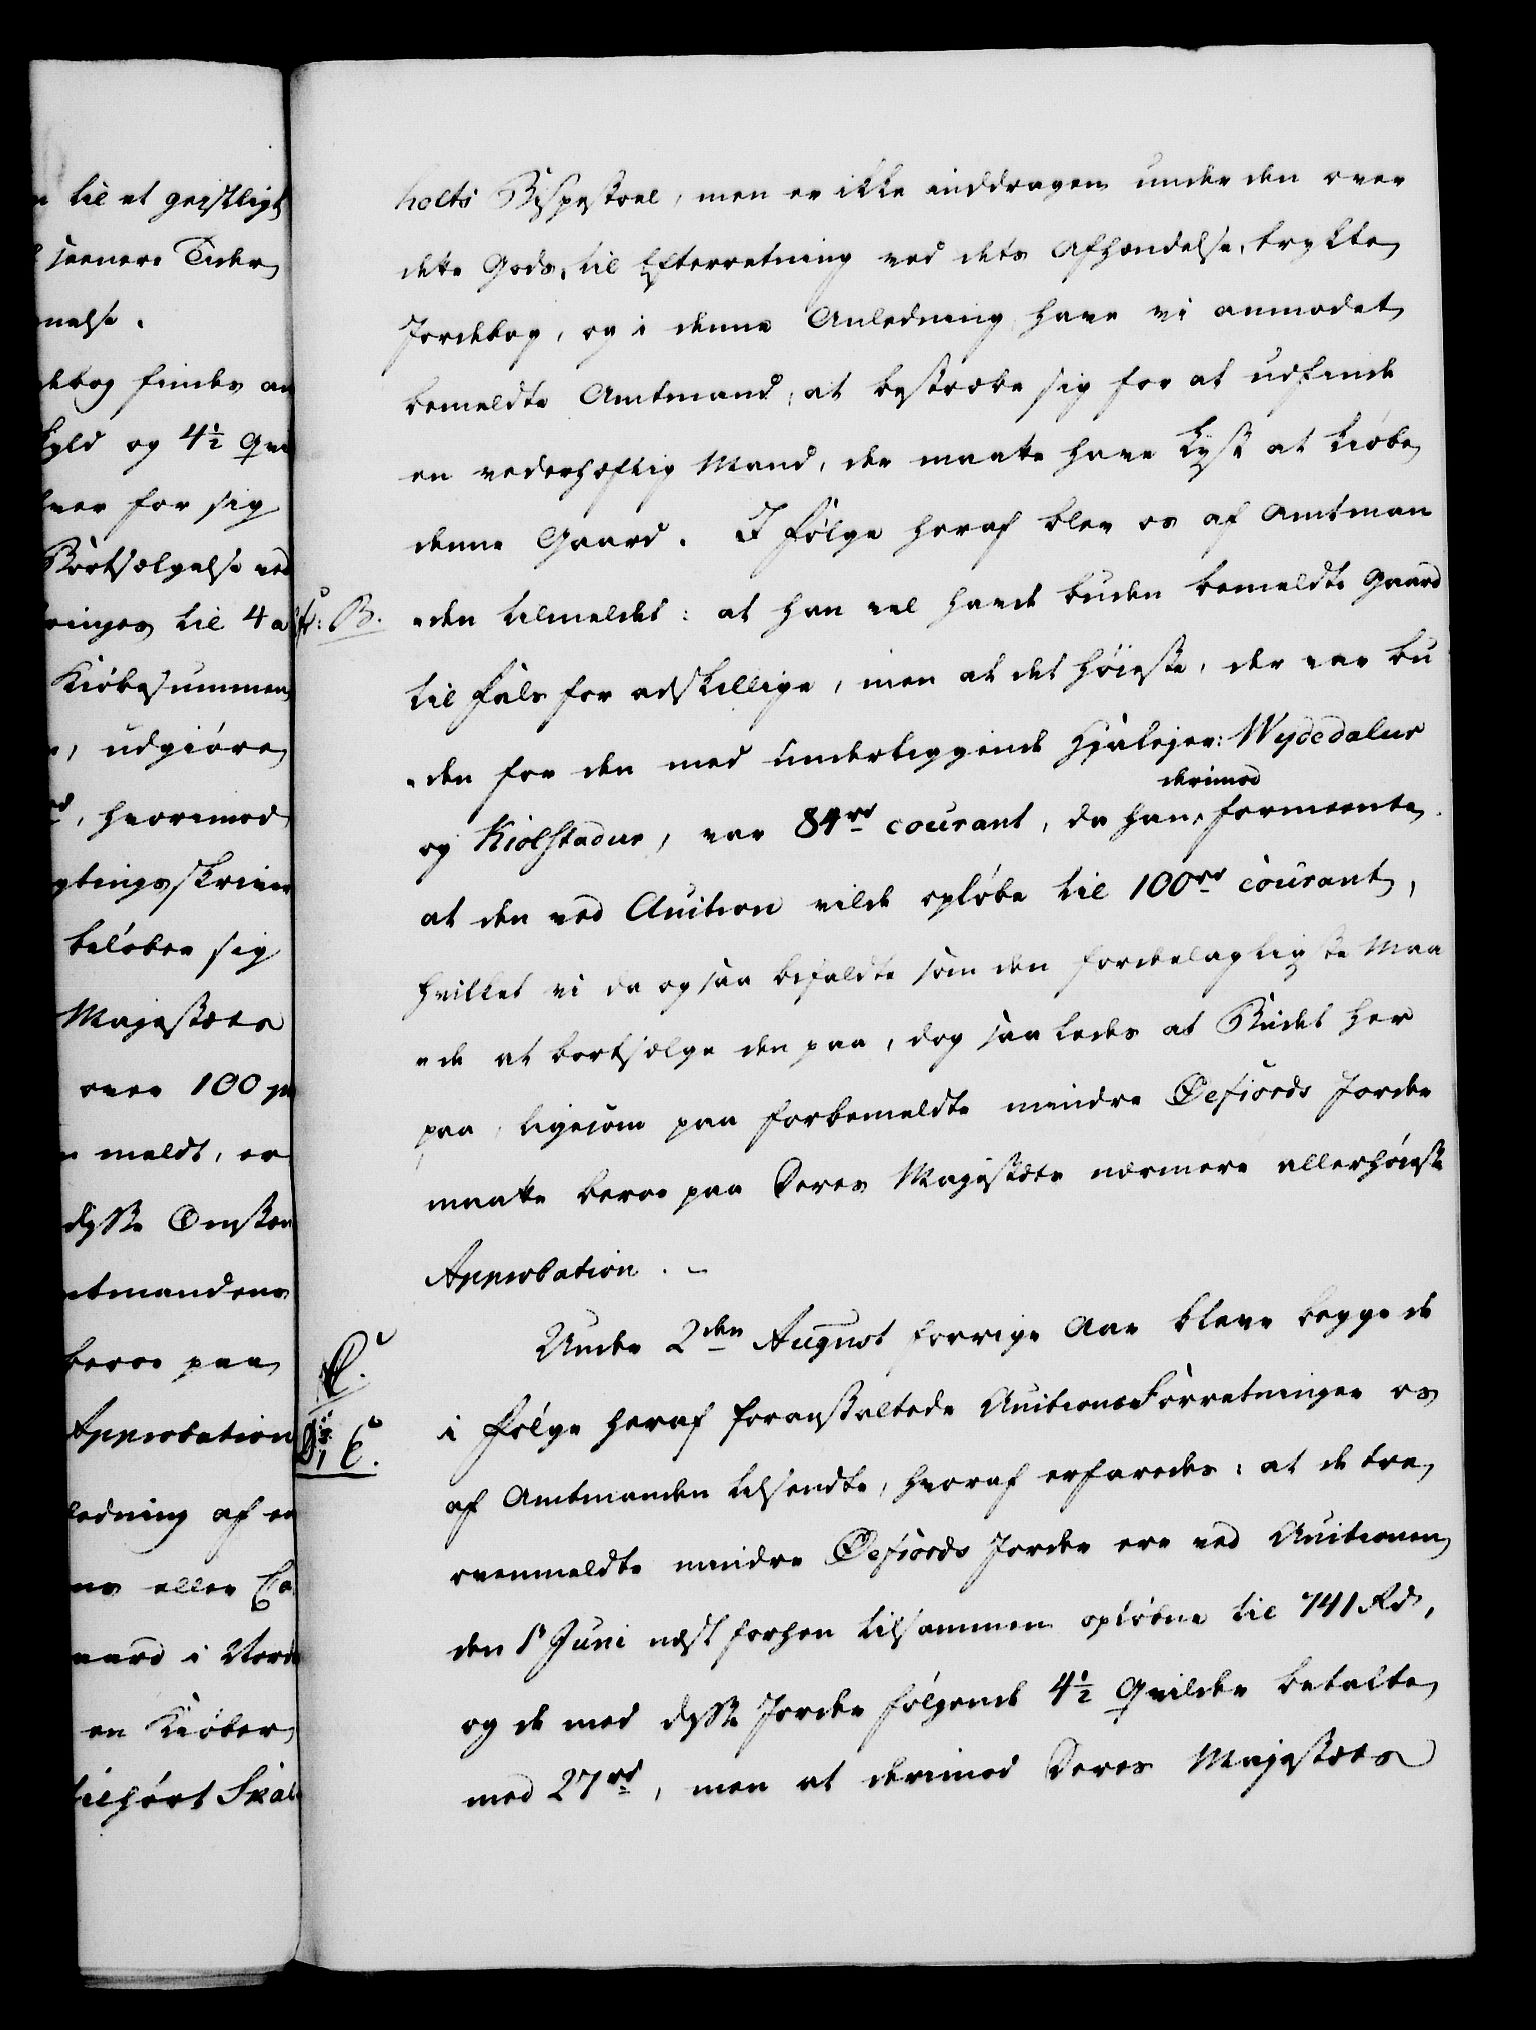 til et geistligt
seenere Tider
nelse.
debog findes an
kyld og 4½ Qvi
hver for sig
Bortsælgelse ved
bringes til 4 a
Kiøbesummen
udgiøre
hvorimod
gtingsskriver
beløber sig
Majestæts
over 100 p
meldt, er
disse Omstæn
mtmandens
beroe paa
Approbation
ledning af en
ns eller Ea
aard i Nord
en Kiøber
tilhørt Skál
holts Bispestoel, men er ikke inddragen under den over
dette Gods, til Efterretning ved dets Afhændelse, trykte
Jordebog, og i denne Anledning have vi anmodet
bemeldte Amtmand, at bestræbe sig for at udfinde
en vederhæftig Mand, der maatte have Lyst at kiøbe
denne Gaard. I Følge heraf blev os af Amtman
B. =den tilmeldet: at han vel havde buden bemeldte Gaard
til Fals for adskillige, men at det høieste, der var bu
=den for den med underliggende Hjálejer: Wydedalur
derimod
og Kiolstadur, var 84rd courant, da han formeente
at den ved Auction vilde opløbe til 100rd courant,
hvilket vi da ogsaa befaldte som den fordelagtigste Maa
=de at bortsælge den paa, dog saaledes at Budet her
paa, ligesom paa forbemeldte mindre Øefiords Jorder
maatte beroe paa Deres Majestæts nærmere allerhøieste
Approbation. –
Under 2den August forrige Aar bleve begge de
C.
i Følge heraf foranstaltede AuctionsForretninger os
E.
af Amtmanden tilsendte, hvoraf erfaredes: at de tre
ovenmeldte mindre Øefiords Jorder ere ved Auctionen
den 1e Juni næst forhen tilsammen opløbne til 741 Rd,
og de med disse Jorder følgende 4½ Qvilder betalte
med 27rd, men at derimod Deres Majestæts